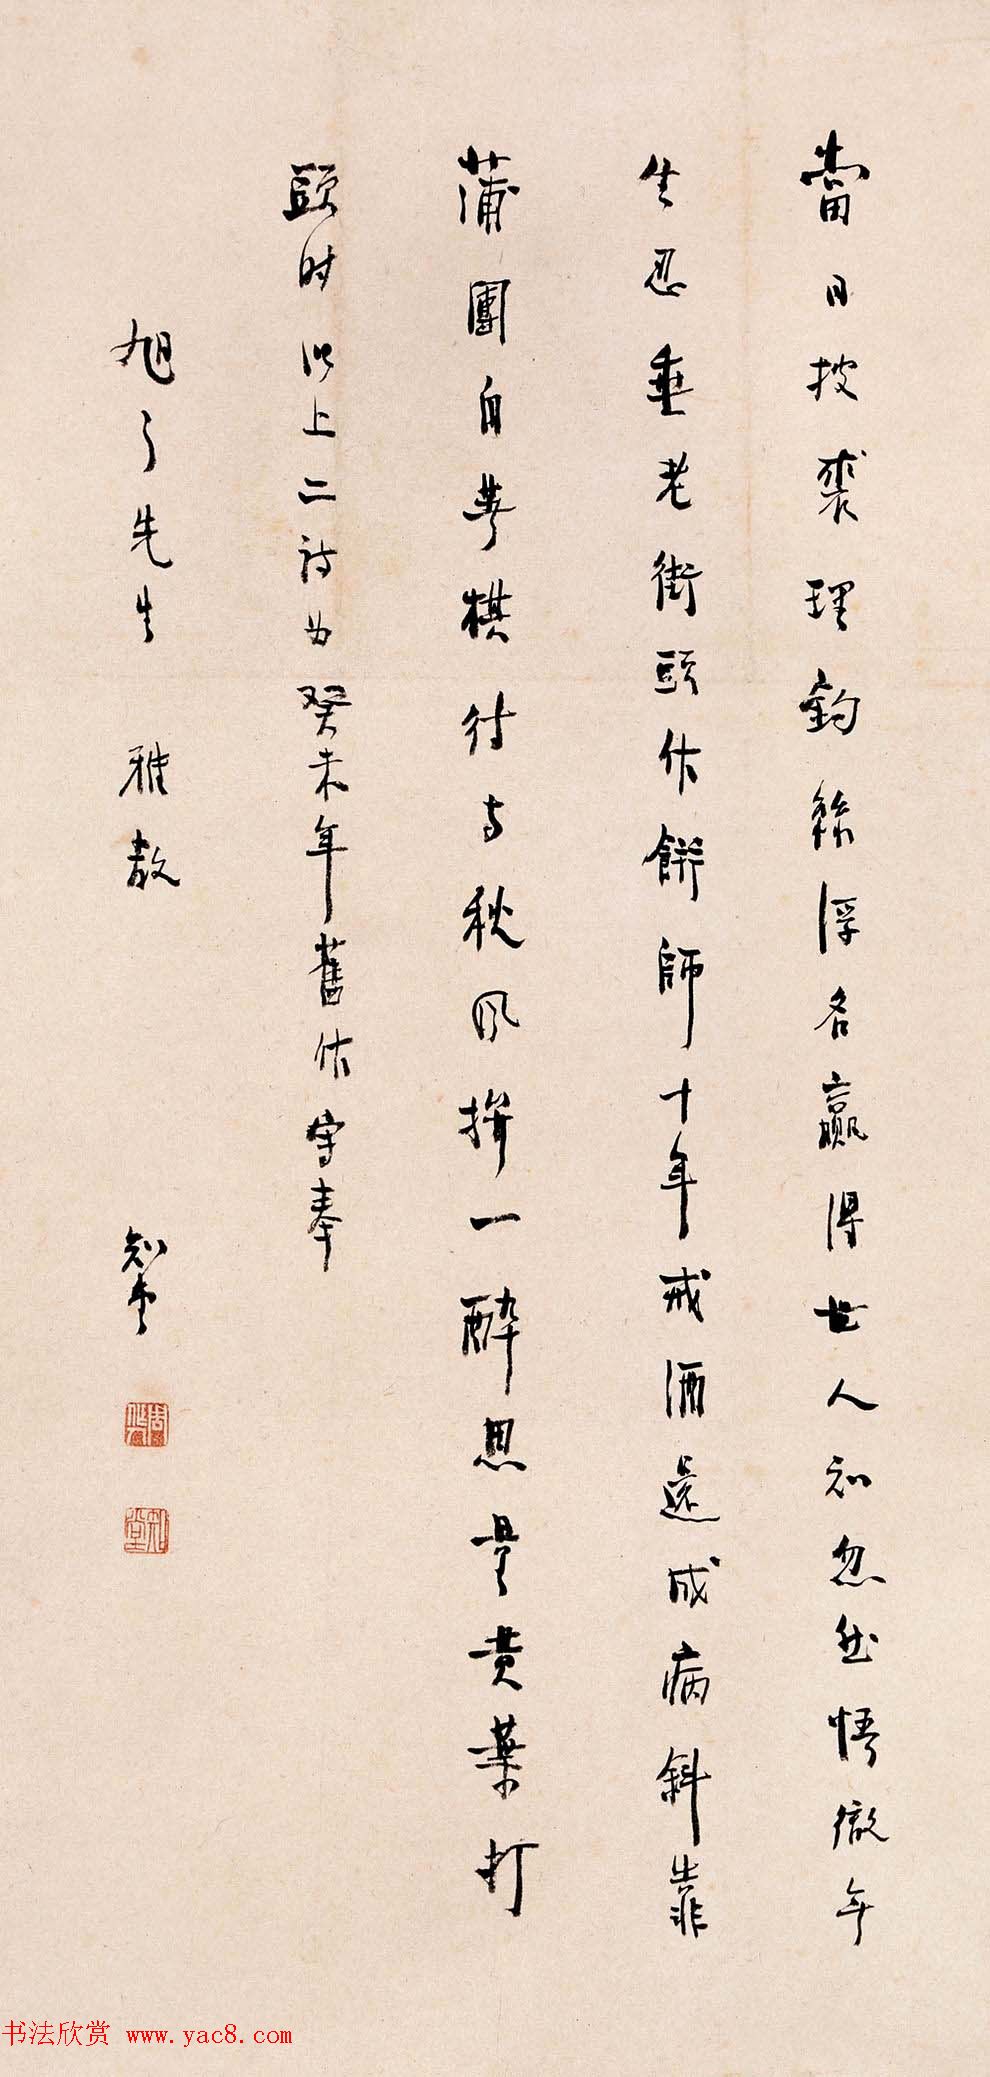 當日披裘理釣絲浮名贏得世人知忽然悟徹無
生忍垂老街頭作餅師十年戒酒還成病斜靠
蒲團自弈棋待與秋風拚一醉思量黃葉打
頭時以上二詩為癸未年舊作寫奉
旭了先生 雅教
知堂
知堂
书法欣赏 www.yac8.com